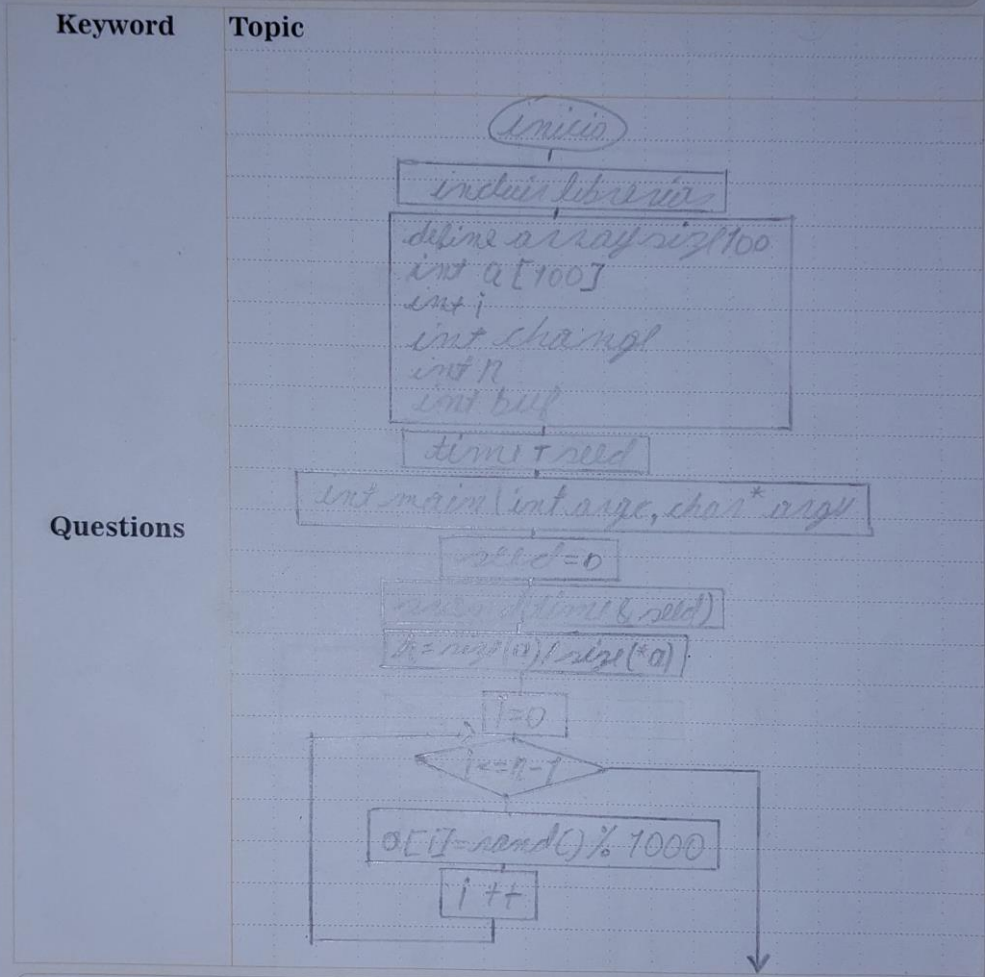 Keyword
Topic
inicio
incluir librerias
define array size 100
int a [100]
int i
int change
int n
int buf
time T seed
int main (int argc, char* argv
seed=0
srand(time & seed)
n=size(a)/size(*a)
i=0
i<=n-1
a[i]=rand()% 1000
i ++
Questions